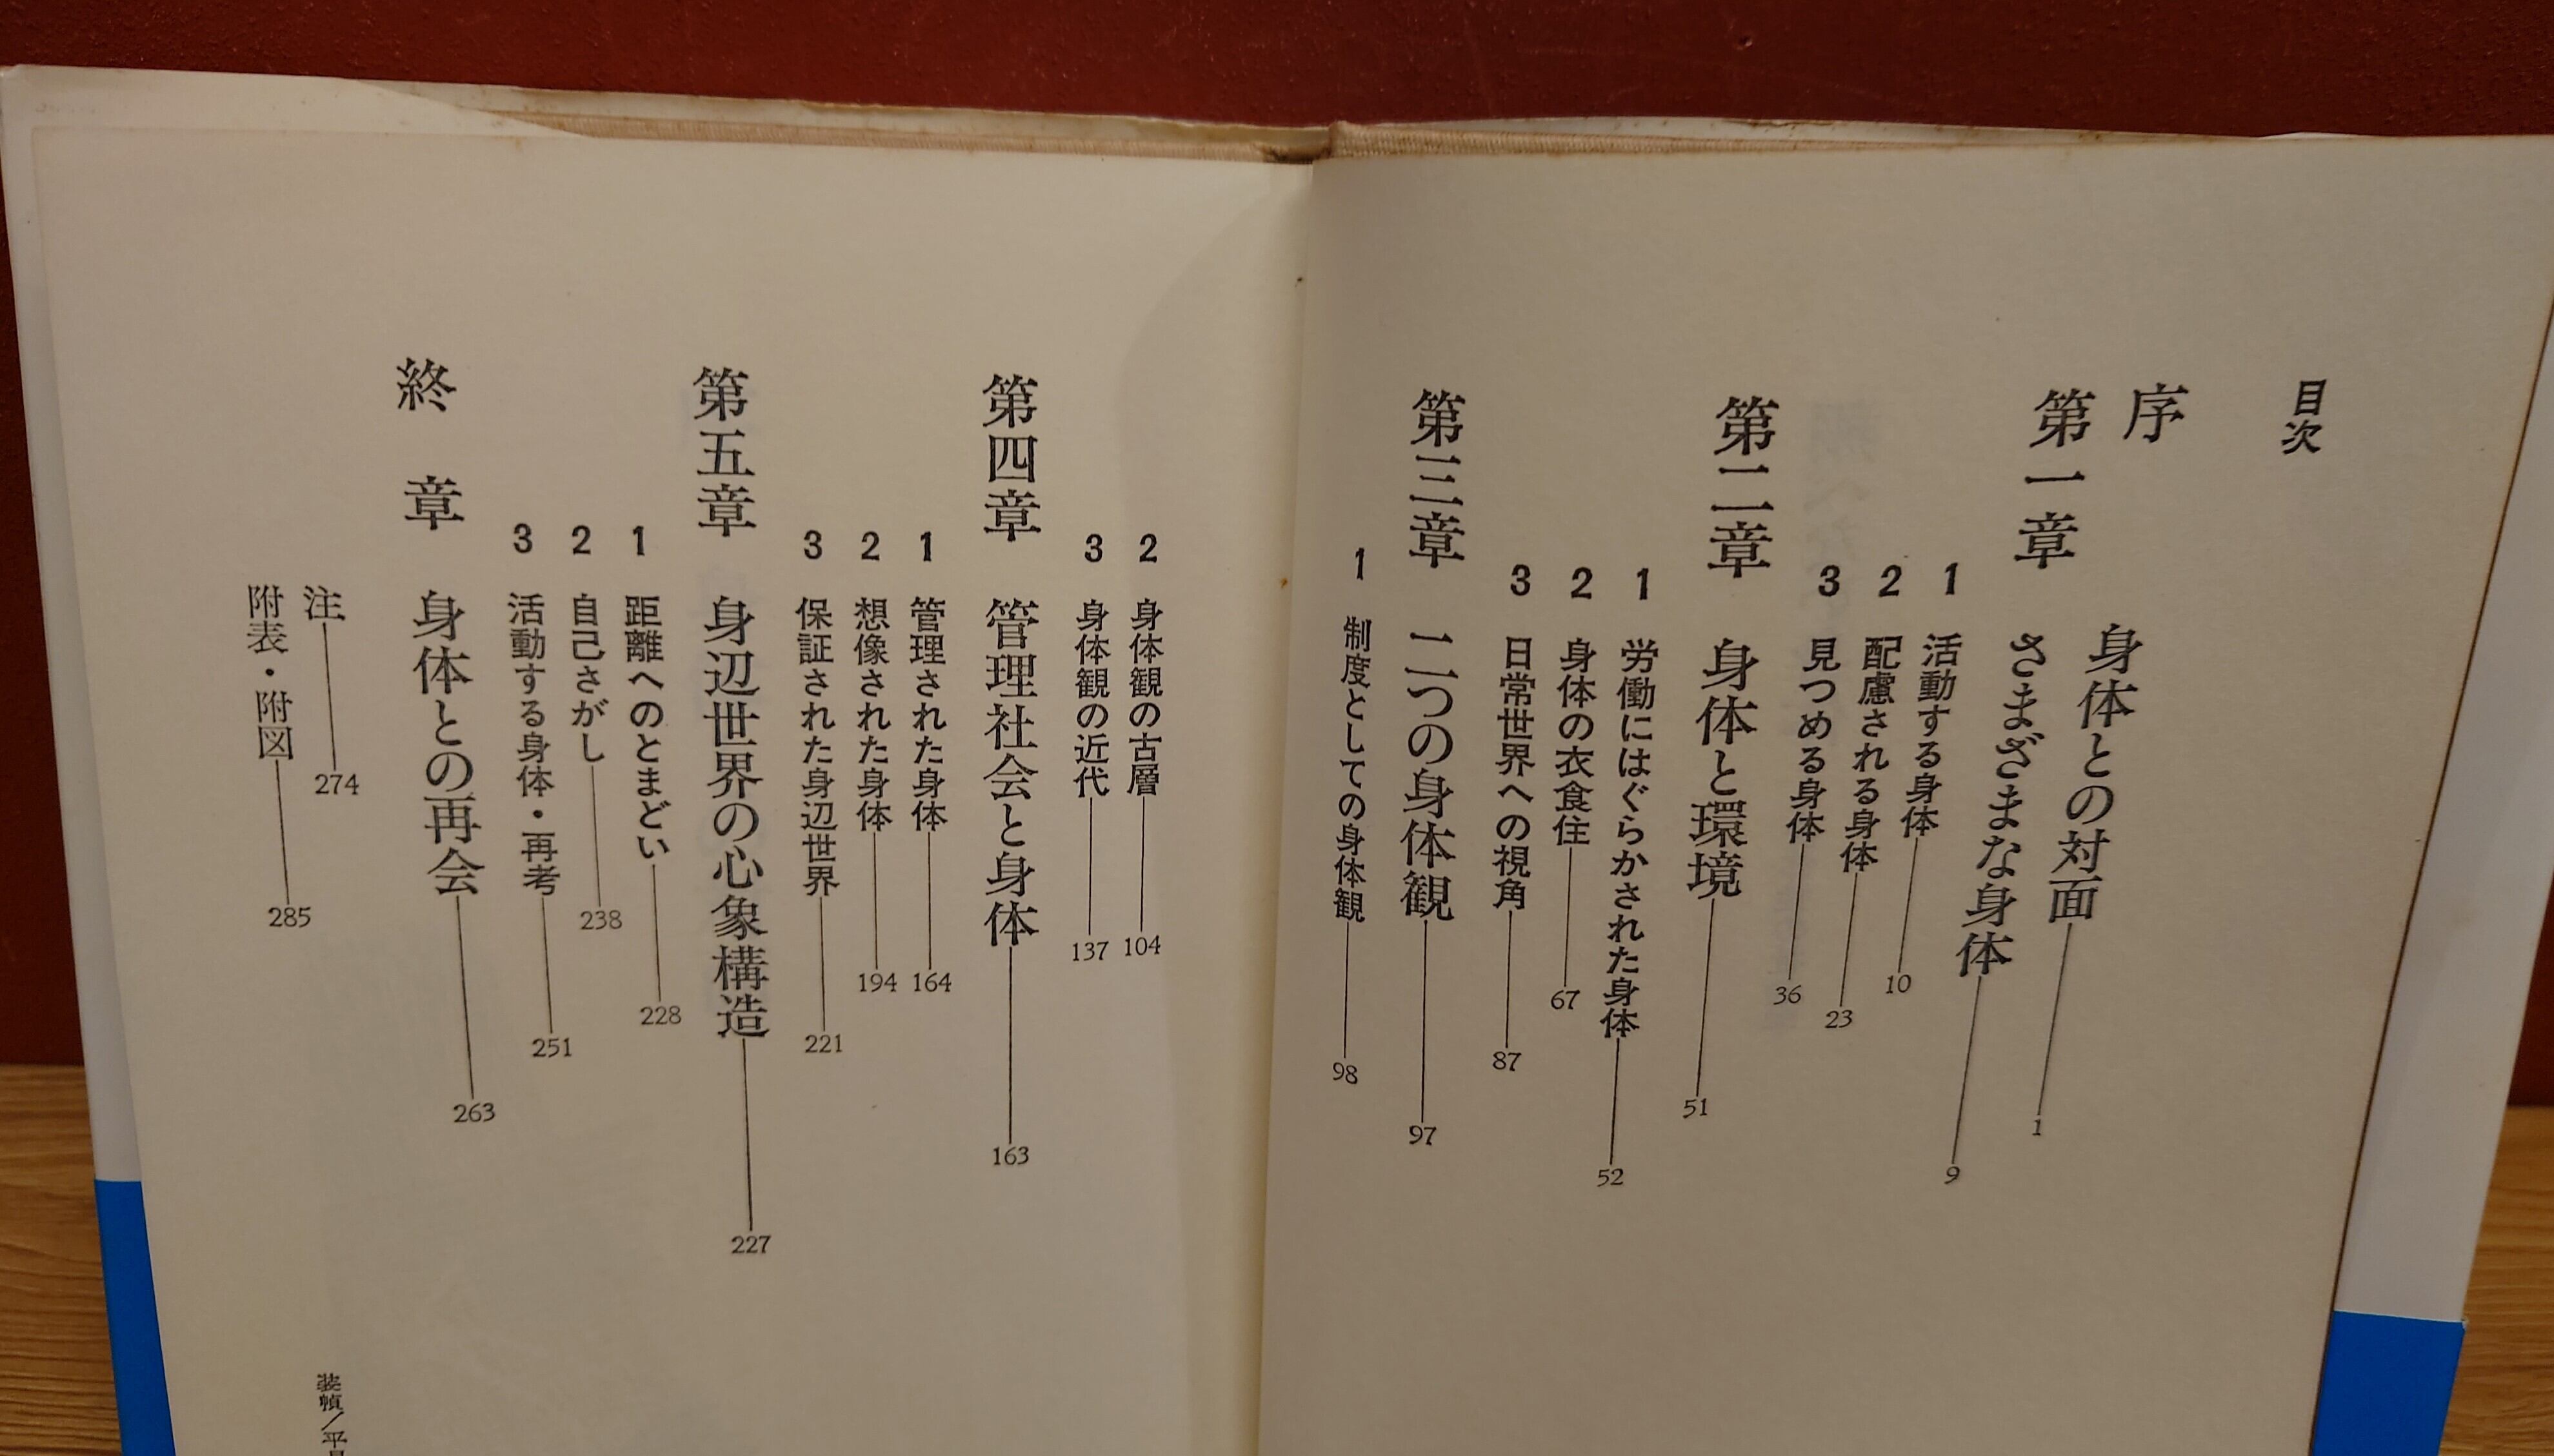 目次
序 身体との対面 1
第一章 さまざまな身体 9
1 活動する身体 10
2 配慮される身体 23
3 見つめる身体 36
第二章 身体と環境 51
1 労働にはぐらかされた身体 52
2 身体の衣食住 67
3 日常世界への視角 87
第三章 二つの身体観 97
1 制度としての身体観 98
2 身体観の古層 104
3 身体観の近代 137
第四章 管理社会と身体 163
1 管理された身体 164
2 想像された身体 194
3 保証された身辺世界 221
第五章 身辺世界の心象構造 227
1 距離へのとまどい 228
2 自己さがし 238
3 活動する身体・再考 251
終章 身体との再会 263
注 274
附表・附図 285
装幀/平